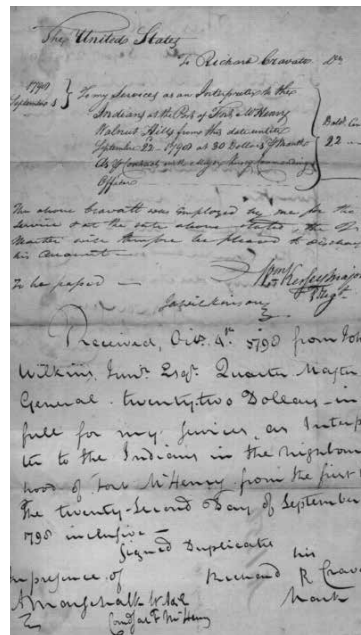 The United States
To Richard Cravat Dr.
1798
September 1
To my Services as an Interpreter to the
Indians at the Post of Fort McHenry
Walnut Hills from this date until
September 22 1798 at 30 Dollars P Month
As P Contract with Major Kersey Commanding
Officer
Doll. Cen
22 --
The above Cravatt was employed by me for the
service & at the rate above stated, the Q
Master will therefore be pleased to discharge
his Account
Wm Kersey Major
3 Regt.
To be passed
Ja Wilkinson
Received, Octr. 4th 1798 from John
Wilkins, Junr. Esqr. Quarter Master
General twenty-two Dollars in
full for my services, as Interp
ter to the Indians in the neighbour
hood of Fort McHenry from the first t
The twenty-Second Day of September
1798 inclusive
Signed Duplicates
In presence of
his
R Crava
Mark
A Marschalk
Comdt. F. McHenry